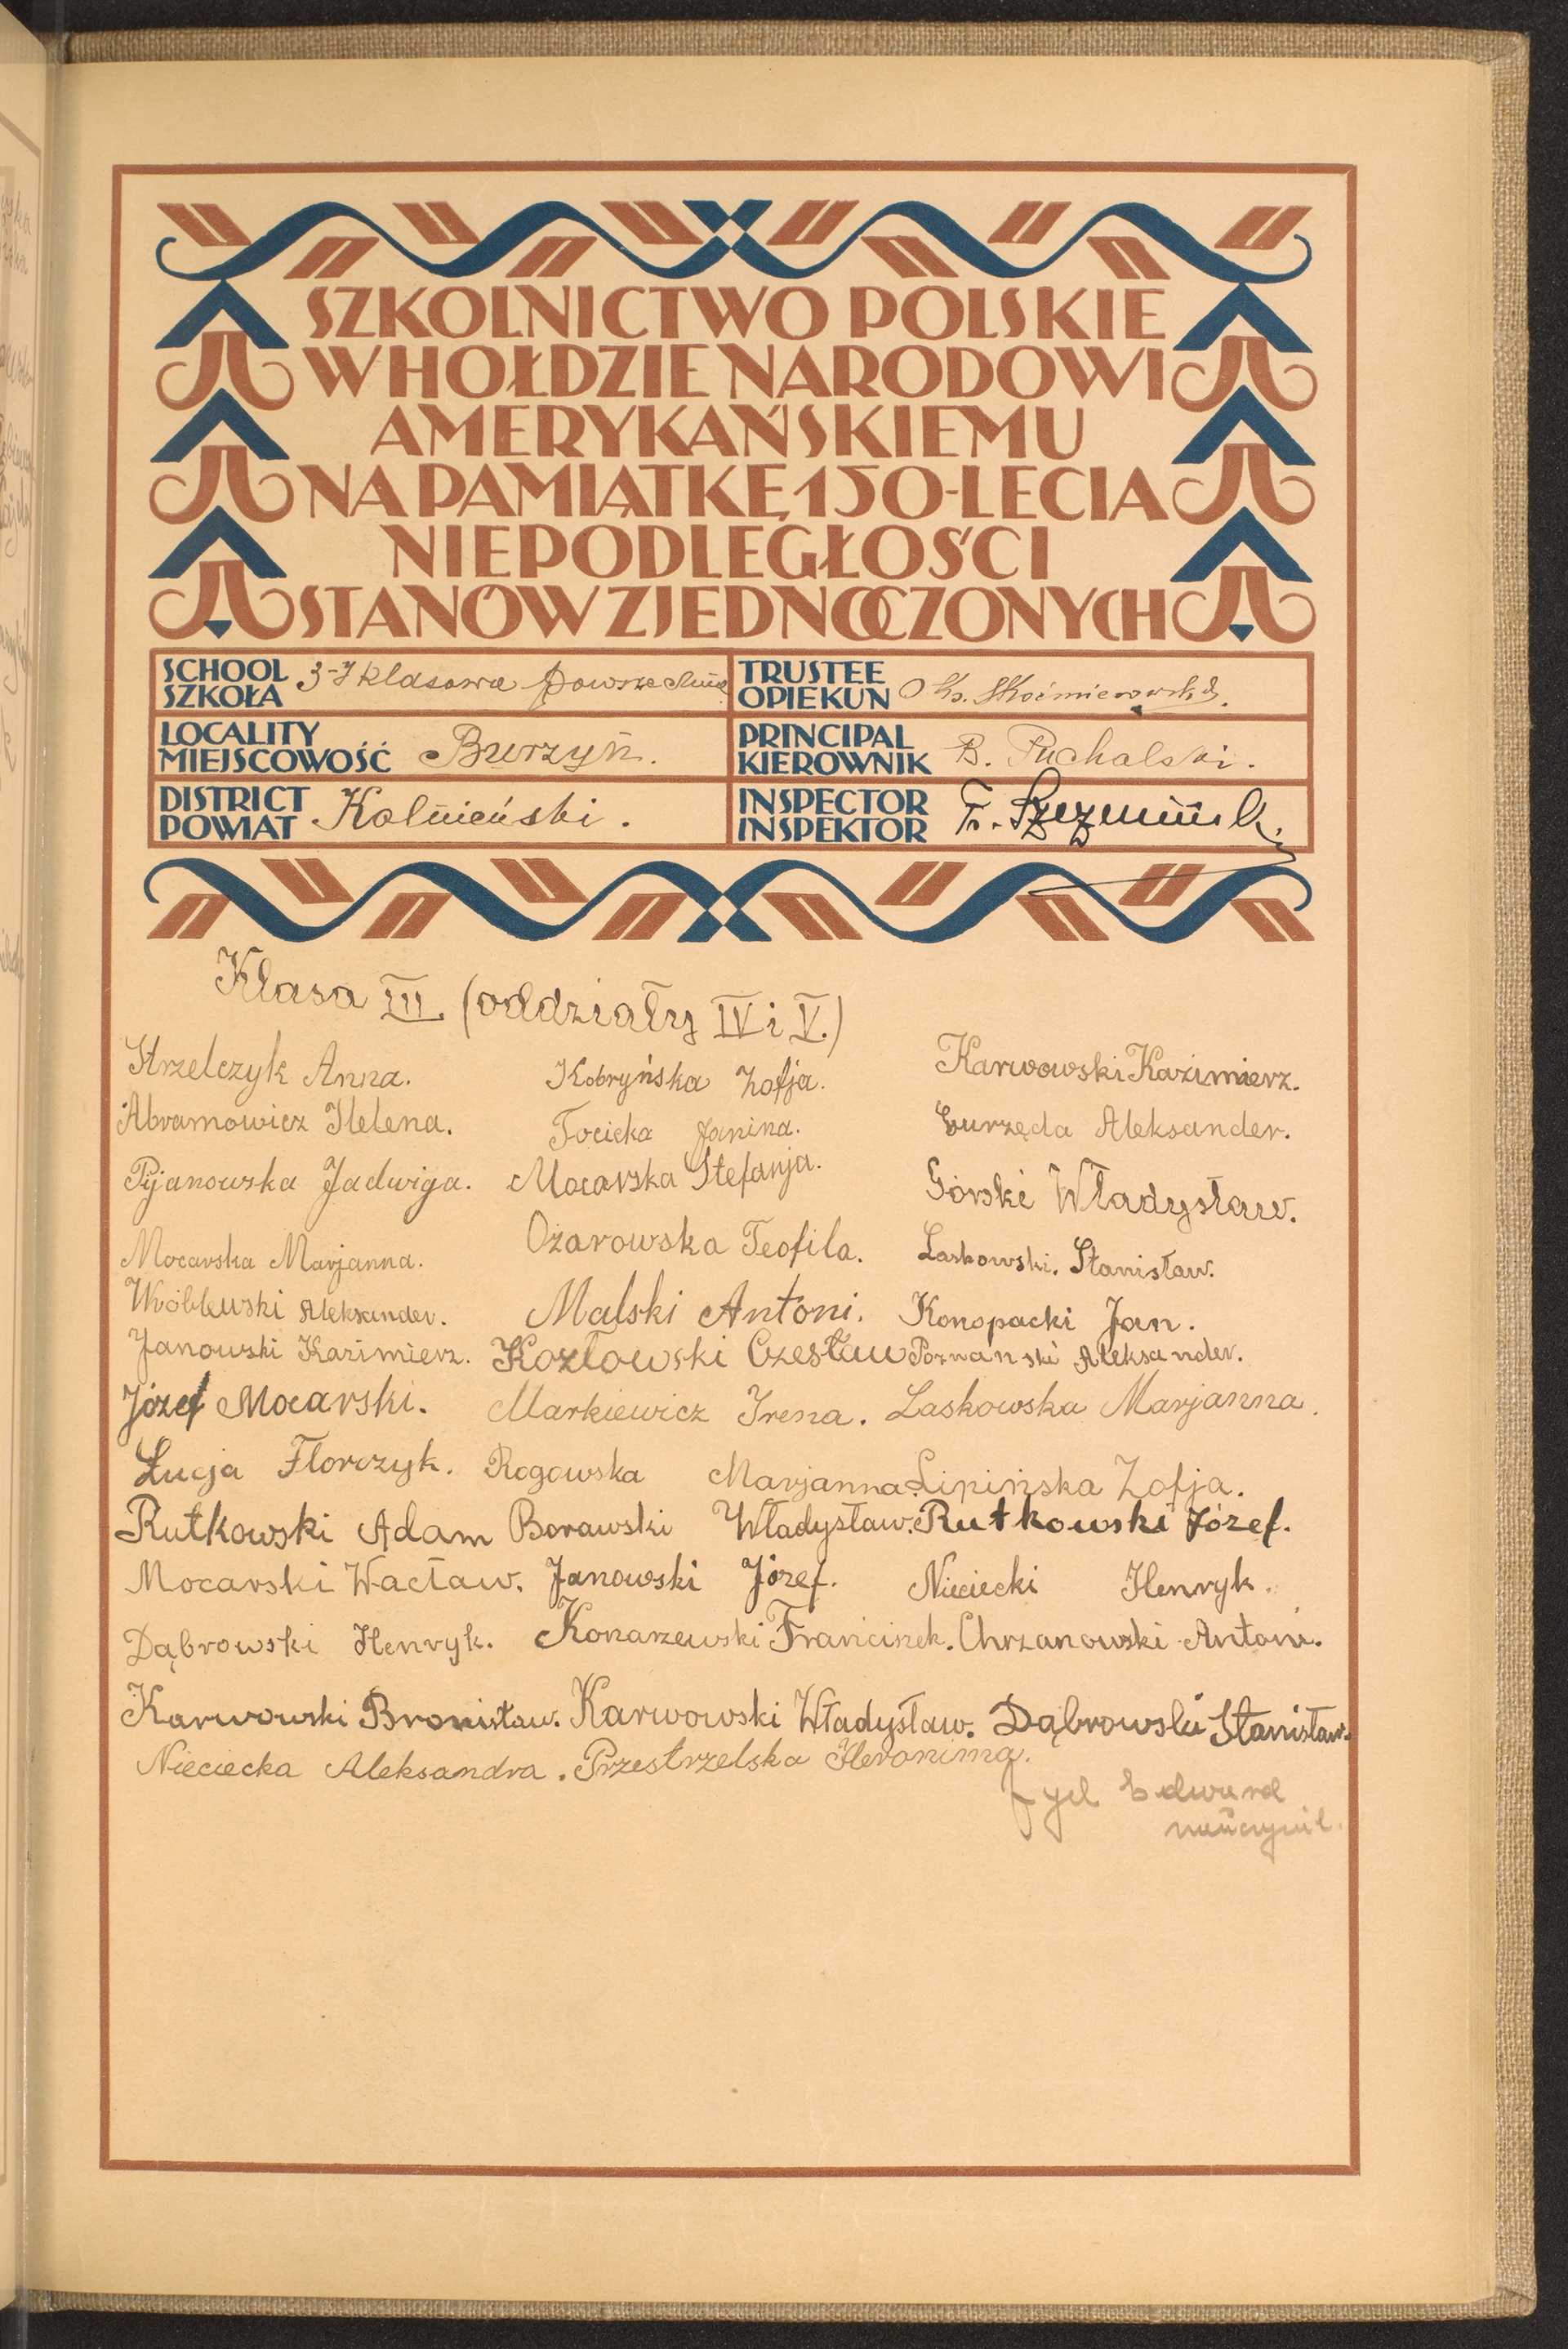 SZKOLNICTWO POLSKIE
W HOŁDZIE NARODOWI
AMERYKAŃSKIEMU
NA PAMIĄTKĘ 150-LECIA
NIEPODLEGŁOŚCI
STANÓW ZJEDNOCZONYCH
SCHOOL
SZKOŁA 3-J klasowa powszechna
TRUSTEE
OPIEKUN
LOCALITY
MIEJSCOWOŚĆ Burzyń.
PRINCIPAL
KIEROWNIK B. Puchalski.
DISTRICT
POWIAT Kolnieński.
INSPECTOR
INSPEKTOR
Klasa III. (oddziały IV i V.)
Strzelczyk Anna. Kobryńska Zofja. Karwowski Kazimierz.
Abramowicz Helena. Tocicka Janina. Aleksander.
Pijanowska Jadwiga. Mocarska Stefanja. Górski Władysław.
Mocarska Marjanna. Ożarowska Teofila. Laskowski. Stanisław.
Wróblewski Aleksander. Malski Antoni. Konopacki Jan.
Janowski Kazimierz. Kozłowski Czesław Poznański Aleksander.
Józef Mocarski. Markiewicz Irena. Laskowska Marjanna.
Łucja Florczyk. Rogowska Marjanna. Lipińska Zofja.
Rutkowski Adam Borawski Władysław. Rutkowski Józef.
Mocarski Wacław. Janowski Józef. Nieciecki Henryk.
Dąbrowski Henryk. Konarzewski Franciszek. Chrzanowski Antoni.
Karwowski Bronisław. Karwowski Władysław. Dąbrowski Stanisław.
Nieciecka Aleksandra. Przestrzelska Heronima.
Edward